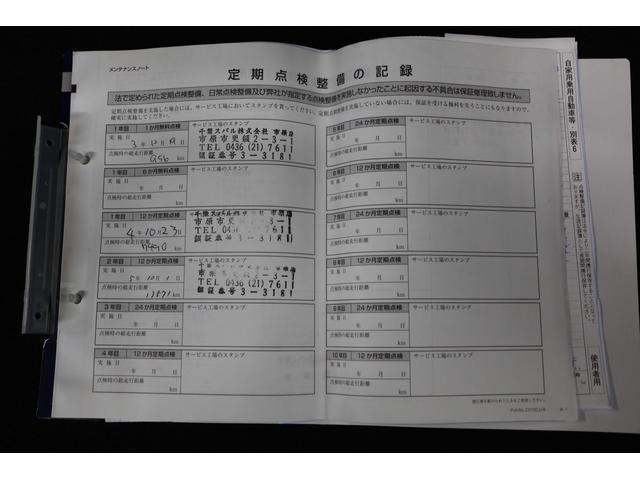 メンテナンスノート
定期点検整備の記録
法で定められた定期点検整備、日常点検整備及び弊社が指定する点検整備を実施しなかったことに起因する不具合は保証修理致しません。
1年目 1か月無料点検
サービス工場のスタンプ
実施日
3年12月
点検時の総走行距離
956 km
千葉スバル株式会社 市原店
市原市更級2-3-1
TEL 0436 (21) 7611
認証番号3-3181
1年目 6か月無料点検
サービス工場のスタンプ
実施日
年 月 日
点検時の総走行距離
km
1年目 12か月定期点検
実施日
4年10月23日
点検時の総走行距離
7490 km
千葉スバル株式会社 市原店
市原市
TEL 0436
認証番号3-3181
2年目 12か月定期点検
実施日
5年10月1日
点検時の総走行距離
km
TEL 0436 (21) 7611
認証番号3-3181
3年目 24か月定期点検
サービス工場のスタンプ
実施日
年 月 日
点検時の総走行距離
km
4年目 12か月定期点検
サービス工場のスタンプ
実施日
年 月 日
点検時の総走行距離
km
5年目 24か月定期点検
サービス工場のスタンプ
実施日
年 月 日
点検時の総走行距離
km
6年目 12か月定期点検
サービス工場のスタンプ
実施日
年 月 日
点検時の総走行距離
km
7年目 24か月定期点検
サービス工場のスタンプ
実施日
年 月 日
点検時の総走行距離
km
8年目 12か月定期点検
サービス工場のスタンプ
実施日
年 月 日
点検時の総走行距離
km
9年目 24か月定期点検
サービス工場のスタンプ
実施日
年 月 日
点検時の総走行距離
km
10年目 12か月定期点検
サービス工場のスタンプ
実施日
年 月 日
点検時の総走行距離
km
自家用乗用自動車等・別表6
使用者用